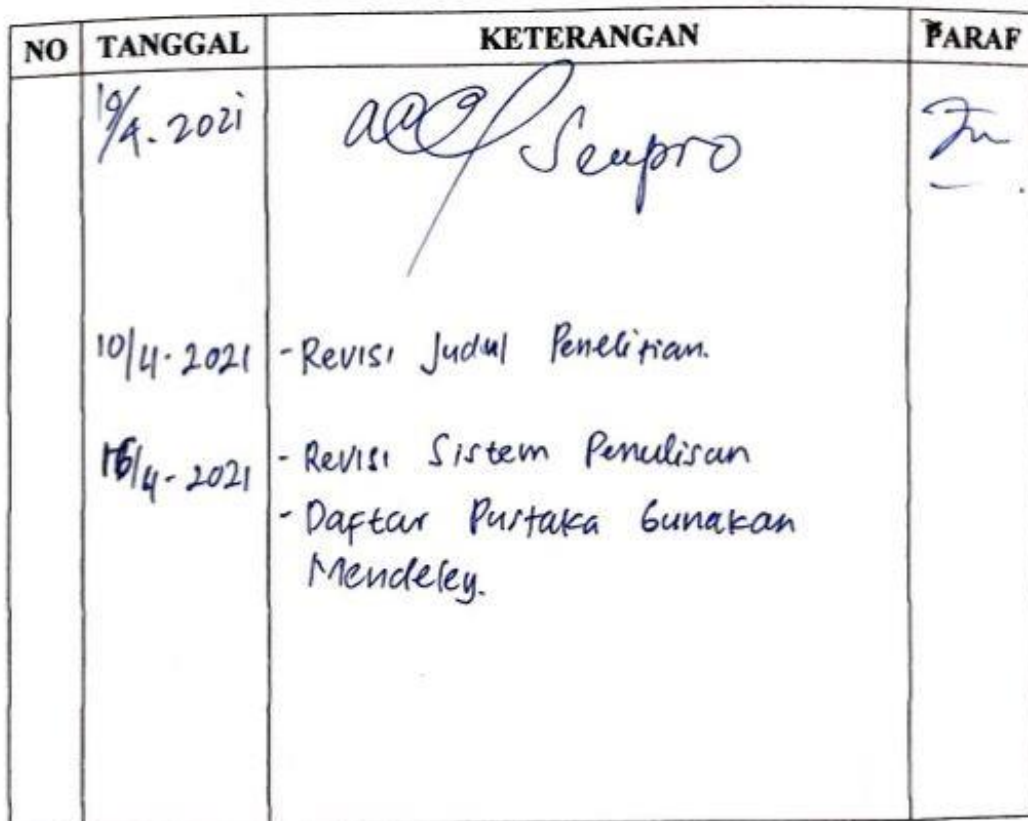 NO TANGGAL KETERANGAN PARAF
19/4.2021 acc Sempro
10/4.2021 - Revisi Judul Penelitian.
16/4-2021 - Revisi Sistem Penulisan
- Daftar Pustaka Gunakan
Mendeley.